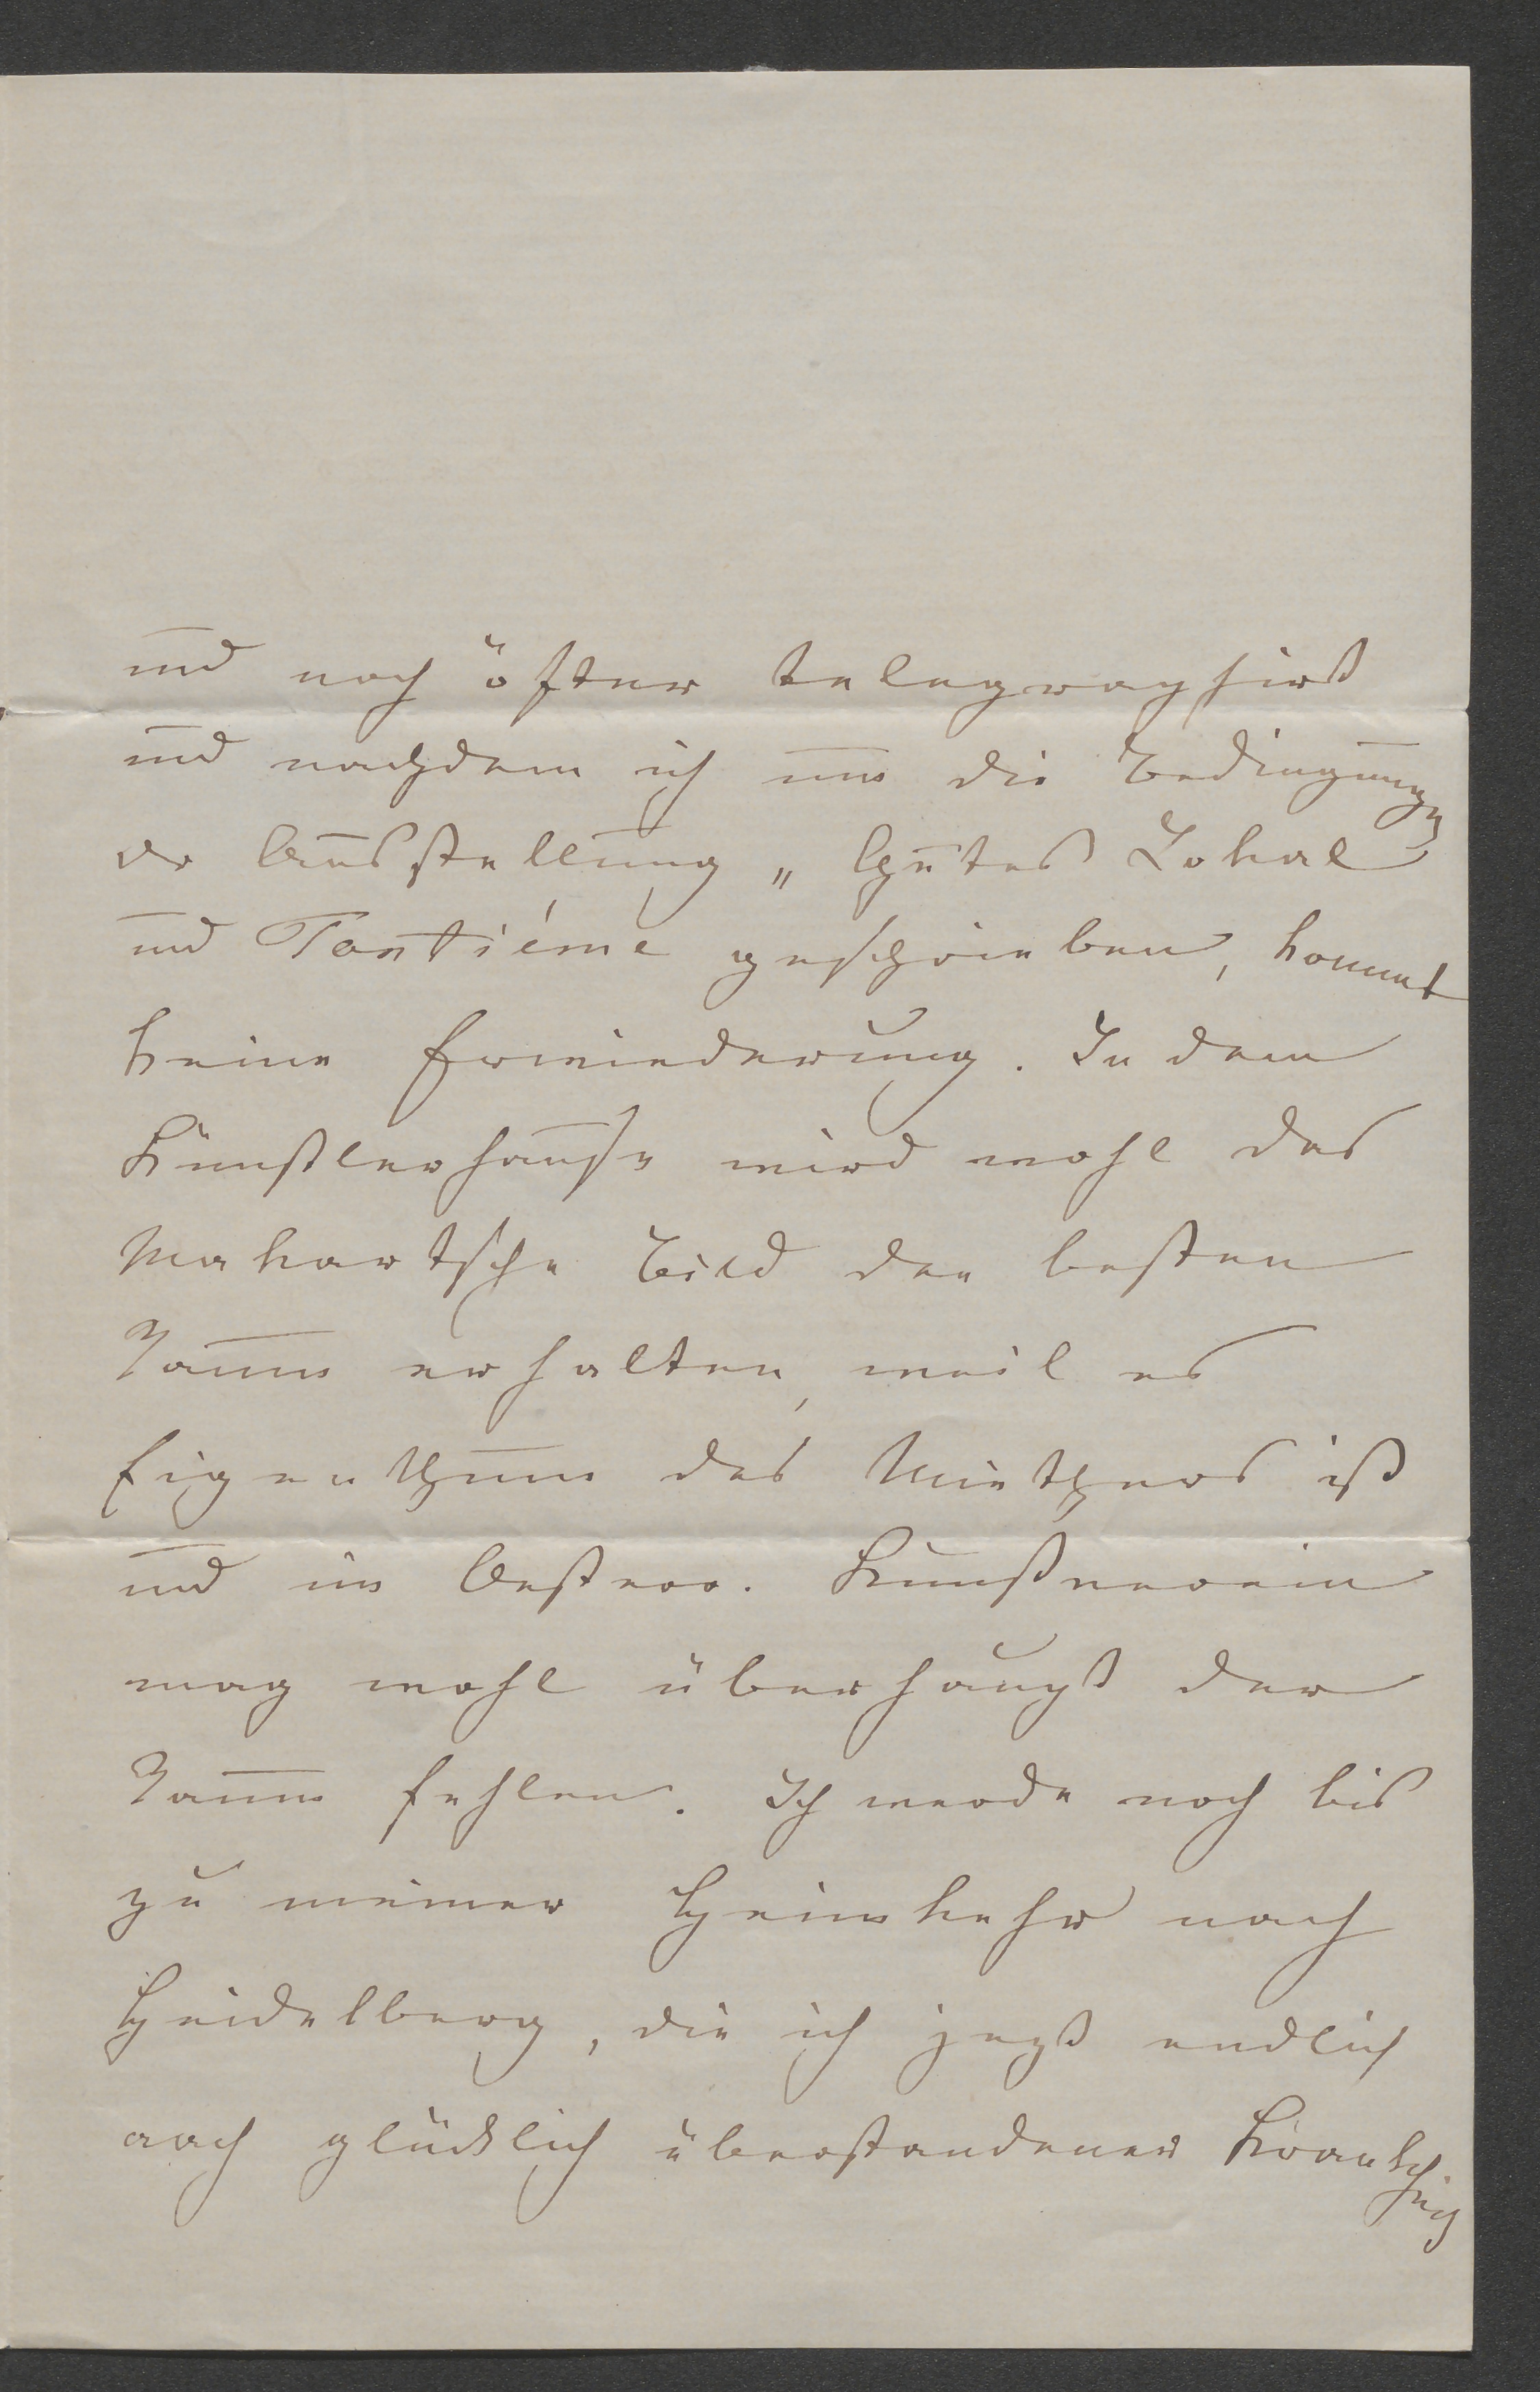 und noch öfter telegraphirt
und nachdem ich nun die Bedingungen
der Ausstellung „Gutes Lokal
und Tantiéme geschrieben, kommt
keine Erwiederung. In dem
Künstlerhause wird wohl das
Makartsche Bild den besten
Raum erhalten, weil es
Eigenthum des Miethers ist
und im Oesterr. Kunstverein
mag wohl überhaupt der
Raum fehlen. Ich werde noch bis
zu meiner Heimkehr nach
Heidelberg, die ich jetzt endlich
nach glücklich überstandener Krankheit